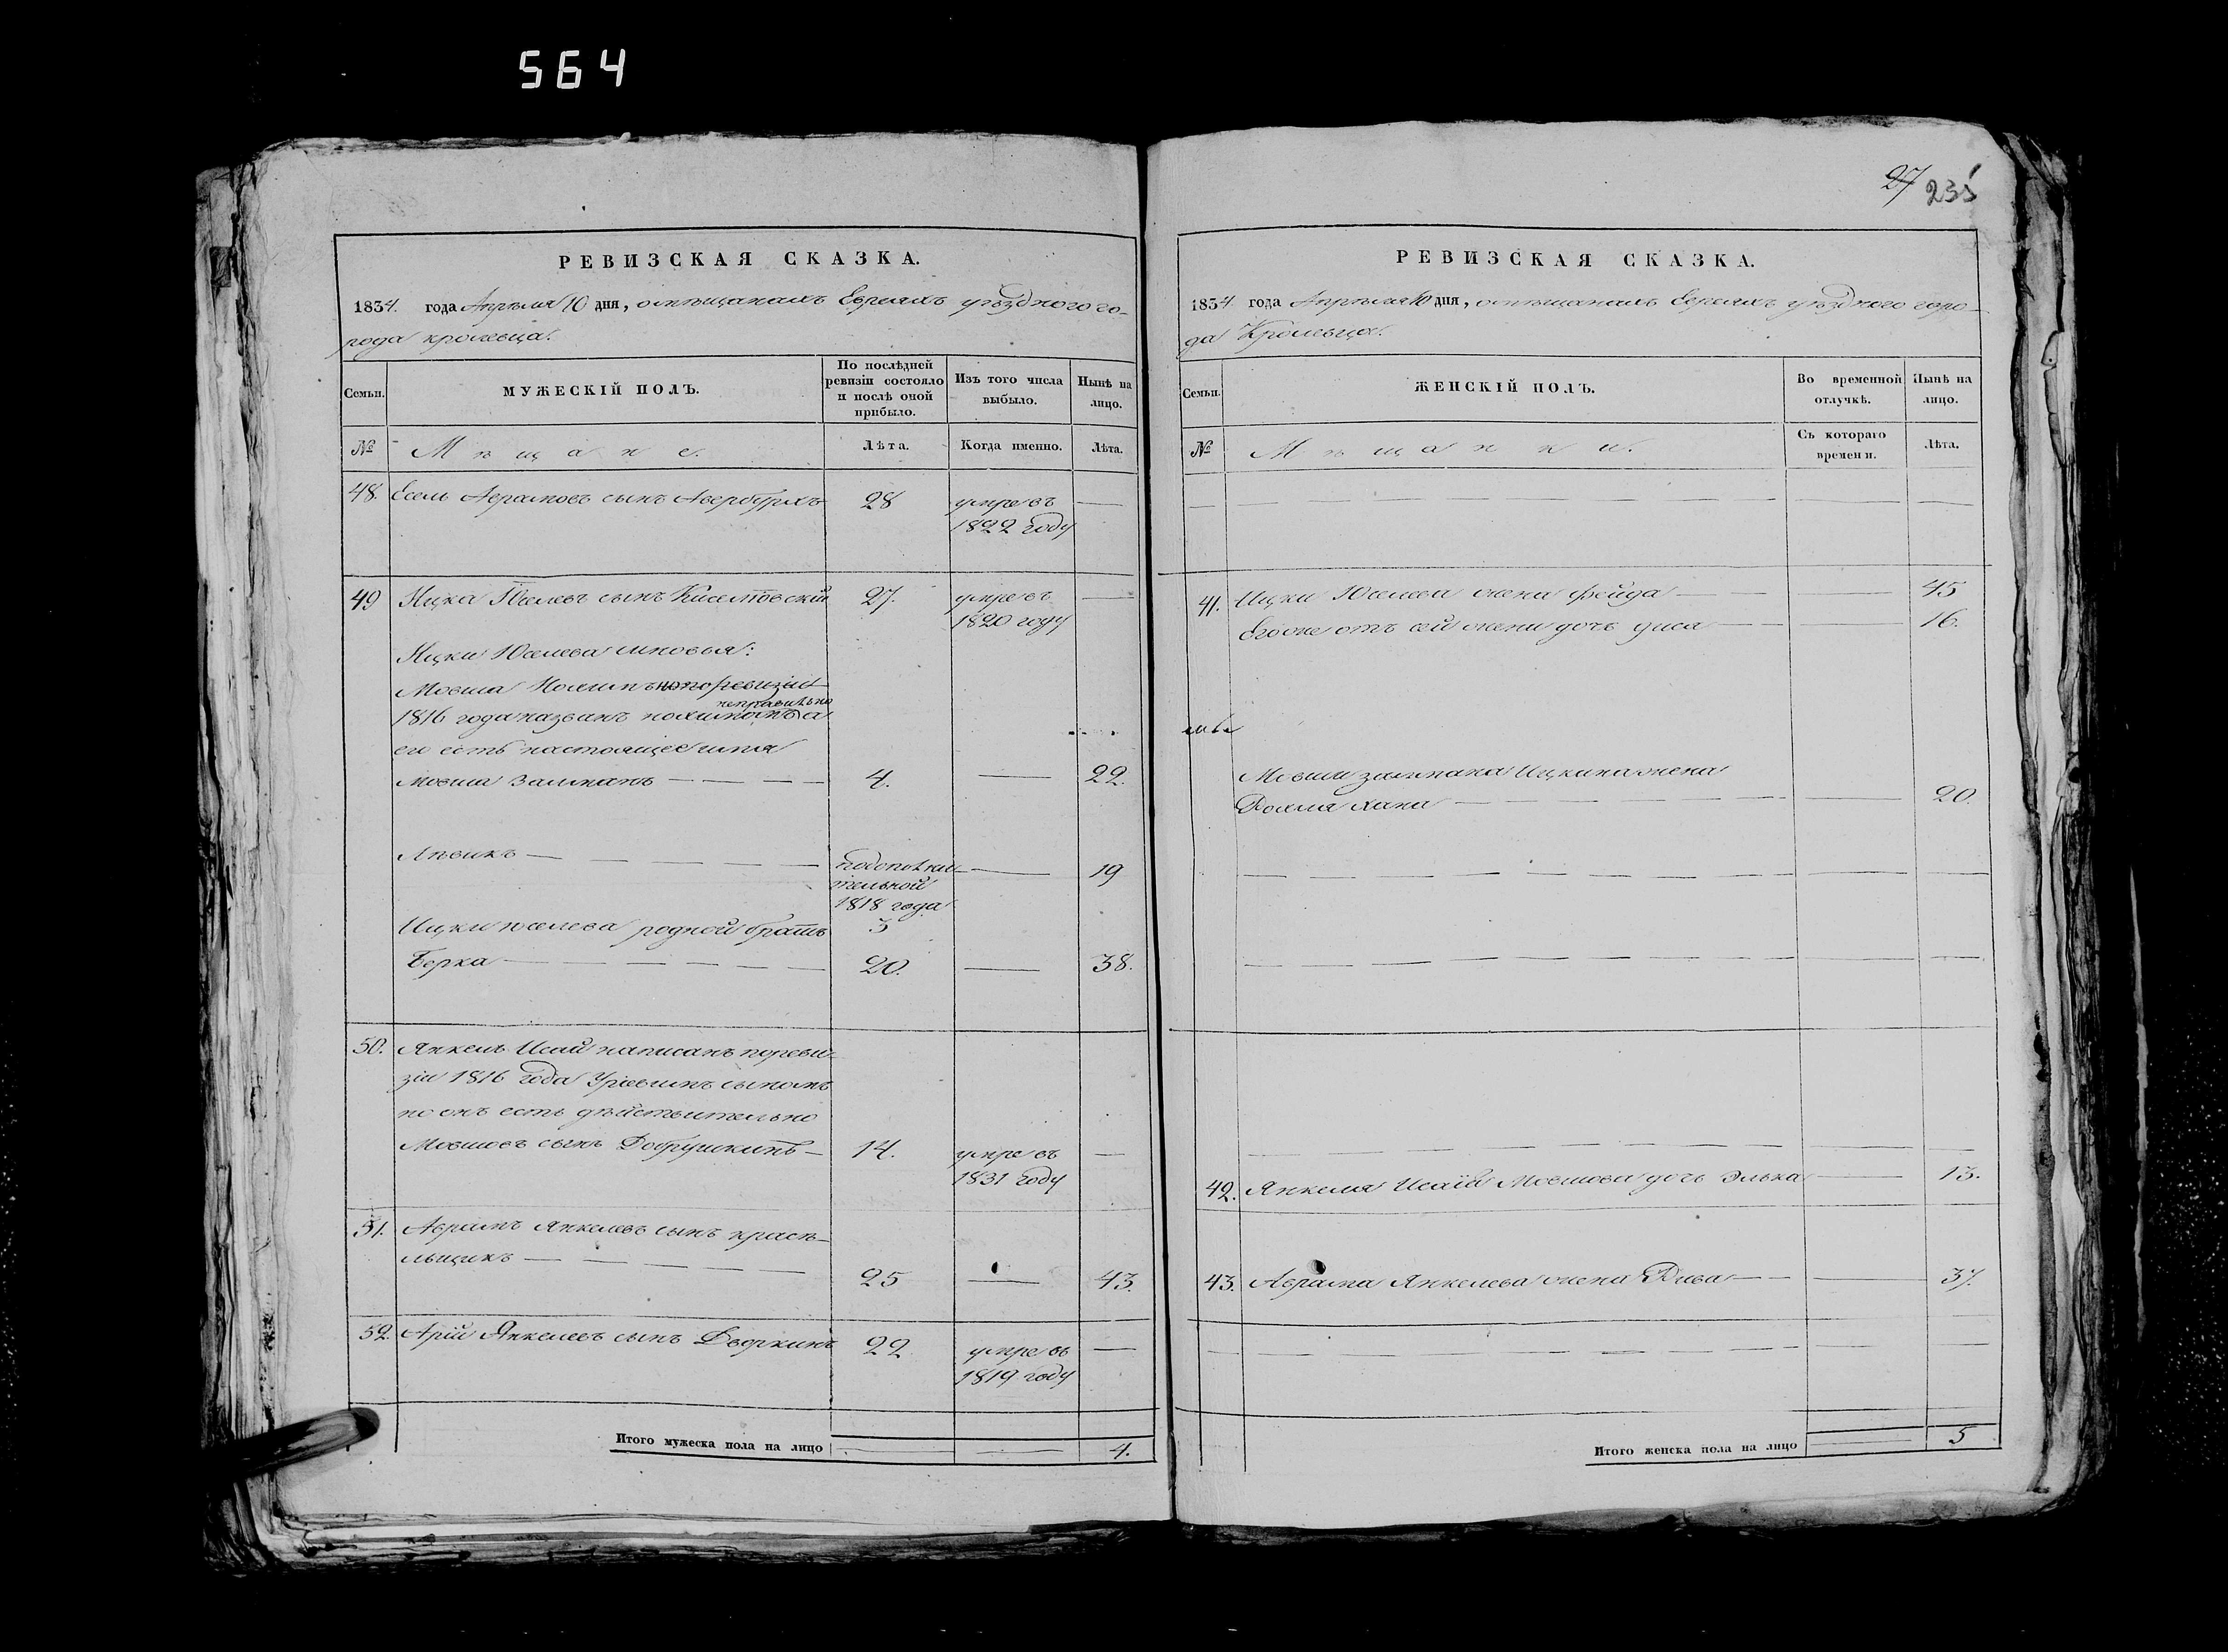 564
27 235
РЕВИЗСКАЯ СКАЗКА.
1834. года Апрѣля 10 дня, о мѣщанахъ Евреяхъ уѣзднаго го-
рода кролевца.
Семьи.
МУЖЕСКІЙ ПОЛЪ.
По послѣдней
ревизіи состояло
и послѣ оной
прибыло.
Изъ того числа
выбыло.
Нынѣ на
лицо.
№
Мѣщане.
Лѣта.
Когда именно.
Лѣта.
48. Есель Аврамовъ сынъ Авербухъ 28 умре въ —
1822 году
49 Ицка Юселевъ сынъ 27. умре въ —
1820 году
Ицки Юселева сыновья:
Мовша по ревизіи
неправильно
1816 года названъ а
его есть настоящее имя
Мовша Залманъ — — — 4. — 22.
Лѣвикъ — — — — — 19
1818 года
Ицки юселева родной братъ 3
Берка — — — — — 20. — 38.
50. Янкель Исай написанъ по реви-
зіи 1816 года Уріевымъ сыномъ
но онъ есть дѣйствительно
Мовшовъ сынъ Добрушкинъ — 14. умре въ —
1831 году
51. Аврамъ Янкелевъ сынъ красѣ-
льщикъ — — — — — 25 — 43.
52. Арій Янкелевъ сынъ Дворкинъ 22 умре въ —
1819 году
Итого мужеска пола на лицо — — 4.
РЕВИЗСКАЯ СКАЗКА.
1834 года Апрѣля 10 дня, о мѣщанахъ Евреяхъ уѣзднаго горо-
да Кролевца.
Семьи.
ЖЕНСКІЙ ПОЛЪ.
Во временной
отлучкѣ.
Нынѣ на
лицо.
№
Мѣщанки.
Съ котораго
времени.
Лѣта.
41. Ицки Юселева жена Фейга — — 45
Его же отъ сей жены дочь — — 16.
Мовши залмана Ицкина жена
хана — — — — — 20.
42. Янкеля Исаія Мовшова дочь Элька — 13.
43. Аврама Янкелева жена Рива — — — 37.
Итого женска пола на лицо — 5